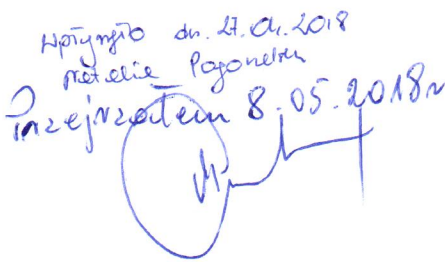 Wpłynęło dn. 27.04.2018
Natalia
Przejrzałem 8.05.2018r